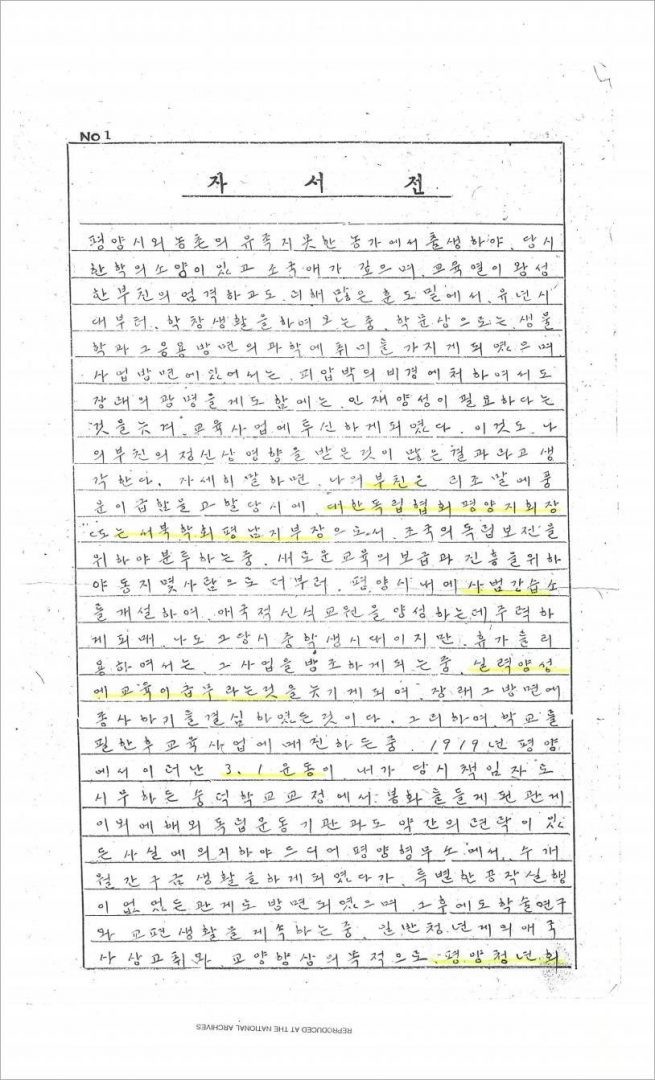 No 1
자 서 전
평양시외 농촌의 유족지못한 농가에서 출생하야, 당시
한학의 소양이 있고 조국애가 깊으며, 교육열이 왕성
한 부친의 엄격하고도 리해 많은 훈도 밑에서, 유년시
대부터, 학창생활을 하여 오는 중, 학문상으로는 생물
학과 그 응용 방면의 과학에 취미를 가지게 되였으며,
사업방면에 있어서는, 피압박의 비경에 처하여서도
장래의 광명을 게도함에는, 인재양성이 필요하다는
것을 늣겨, 교육사업에 투신하게 되였다. 이것도, 나
의 부친의 정신상 영향을 받은것이 많은 결과라고 생
각한다. 자세히 말하면, 나의 부친은 리조 말에 풍
운이 급함을 고할 당시에, 대한독립협회 평양지회장
또는 서북학회 평남지부장으로서, 조국의 독립보전을
위하야 분투하는 중, 새로운 교육의 보급과 진흥을 위하
야 동지 몇사람으로 더부러, 평양시내에 사범강습소
를 개설하여, 애국적 신식교원을 양성하는데 주력하
게 되매, 나도 그 당시 중학생시대이지만, 휴가를 리
용하여서는, 그 사업을 방조하게 되는 중, 실력양성
에 교육이 급무라는것을 늣기게 되여, 장래 그 방면에
종사하기를 결심하였든것이다. 그리하여 학교를
필한후 교육사업에 매진하든 중, 1919년 평양
에서 이러난 3.1운동이, 내가 당시 책임자로
시무하든 숭덕학교 교정에서 봉화를 들게 된 관게
이외에 해외 독립운동기관과도 약간의 련락이 있
든 사실에 의지하야 드디어 평양형무소에서, 수개
월간 구금생활을 하게 되였다가, 특별한 공작실행
이 없었든 관게로 방면되였으며, 그후에도 학술연구
와 교편생활을 게속하는 중, 일반청년게의 애국
사상고취와, 교양향상의 목적으로, 평양청년회
REPRODUCED AT THE NATIONAL ARCHIVES